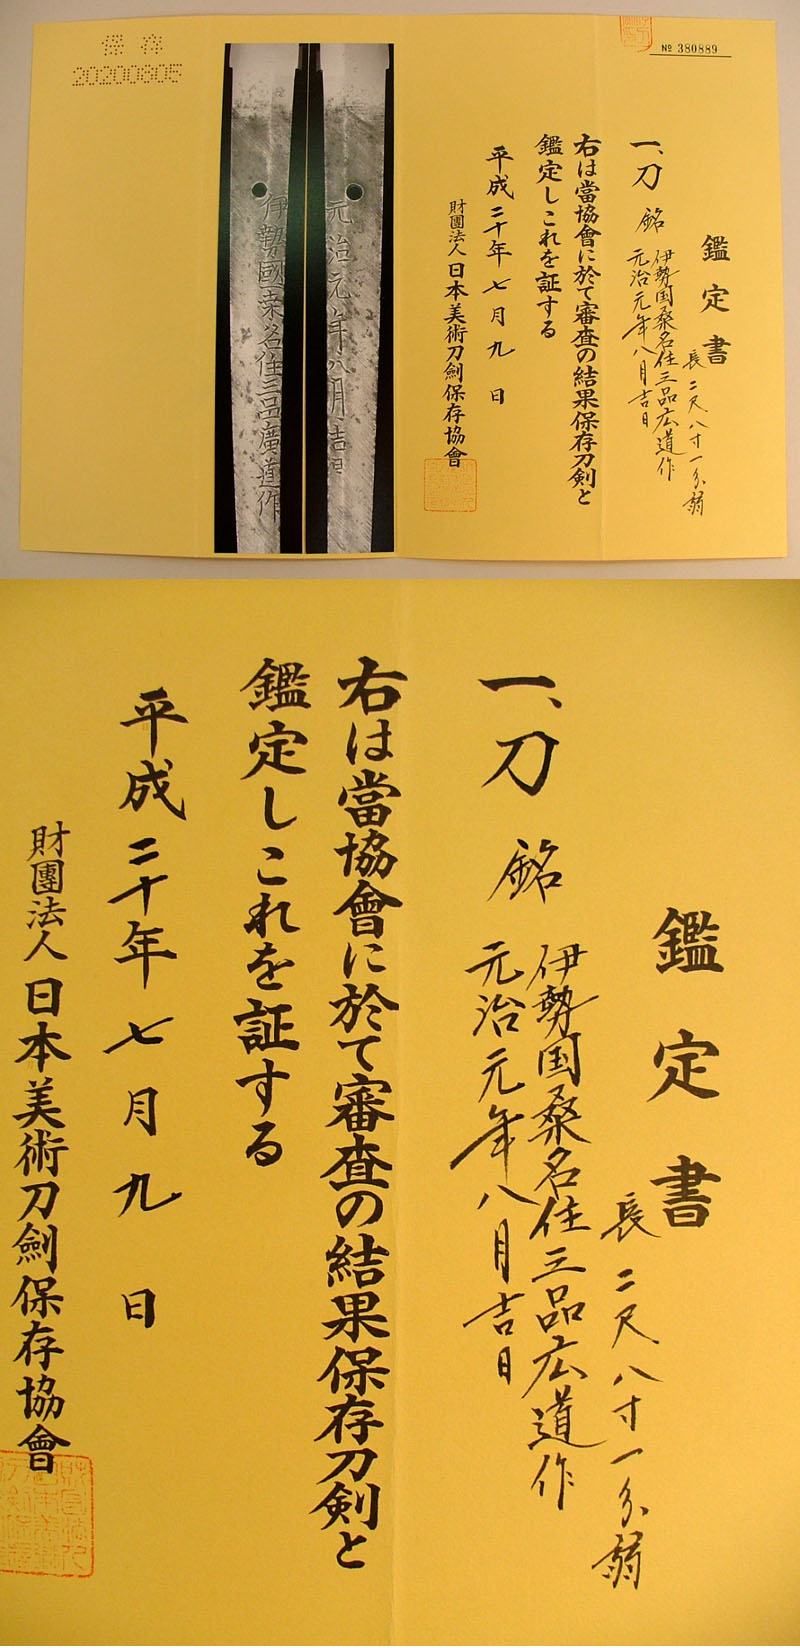 保存
20200805
伊勢國桒名住三品廣道作
元治元年八月吉日
№ 380889
鑑定書
長二尺八寸一分弱
一、刀 銘 伊勢国桑名住三品広道作
元治元年八月吉日
右は當協會に於て審査の結果保存刀剣と
鑑定しこれを証する
平成二十年七月九日
財團法人日本美術刀劍保存協會
鑑定書
長二尺八寸一分弱
一、刀 銘 伊勢国桑名住三品広道作
元治元年八月吉日
右は當協會に於て審査の結果保存刀剣と
鑑定しこれを証する
平成二十年七月九日
財團法人日本美術刀劍保存協會